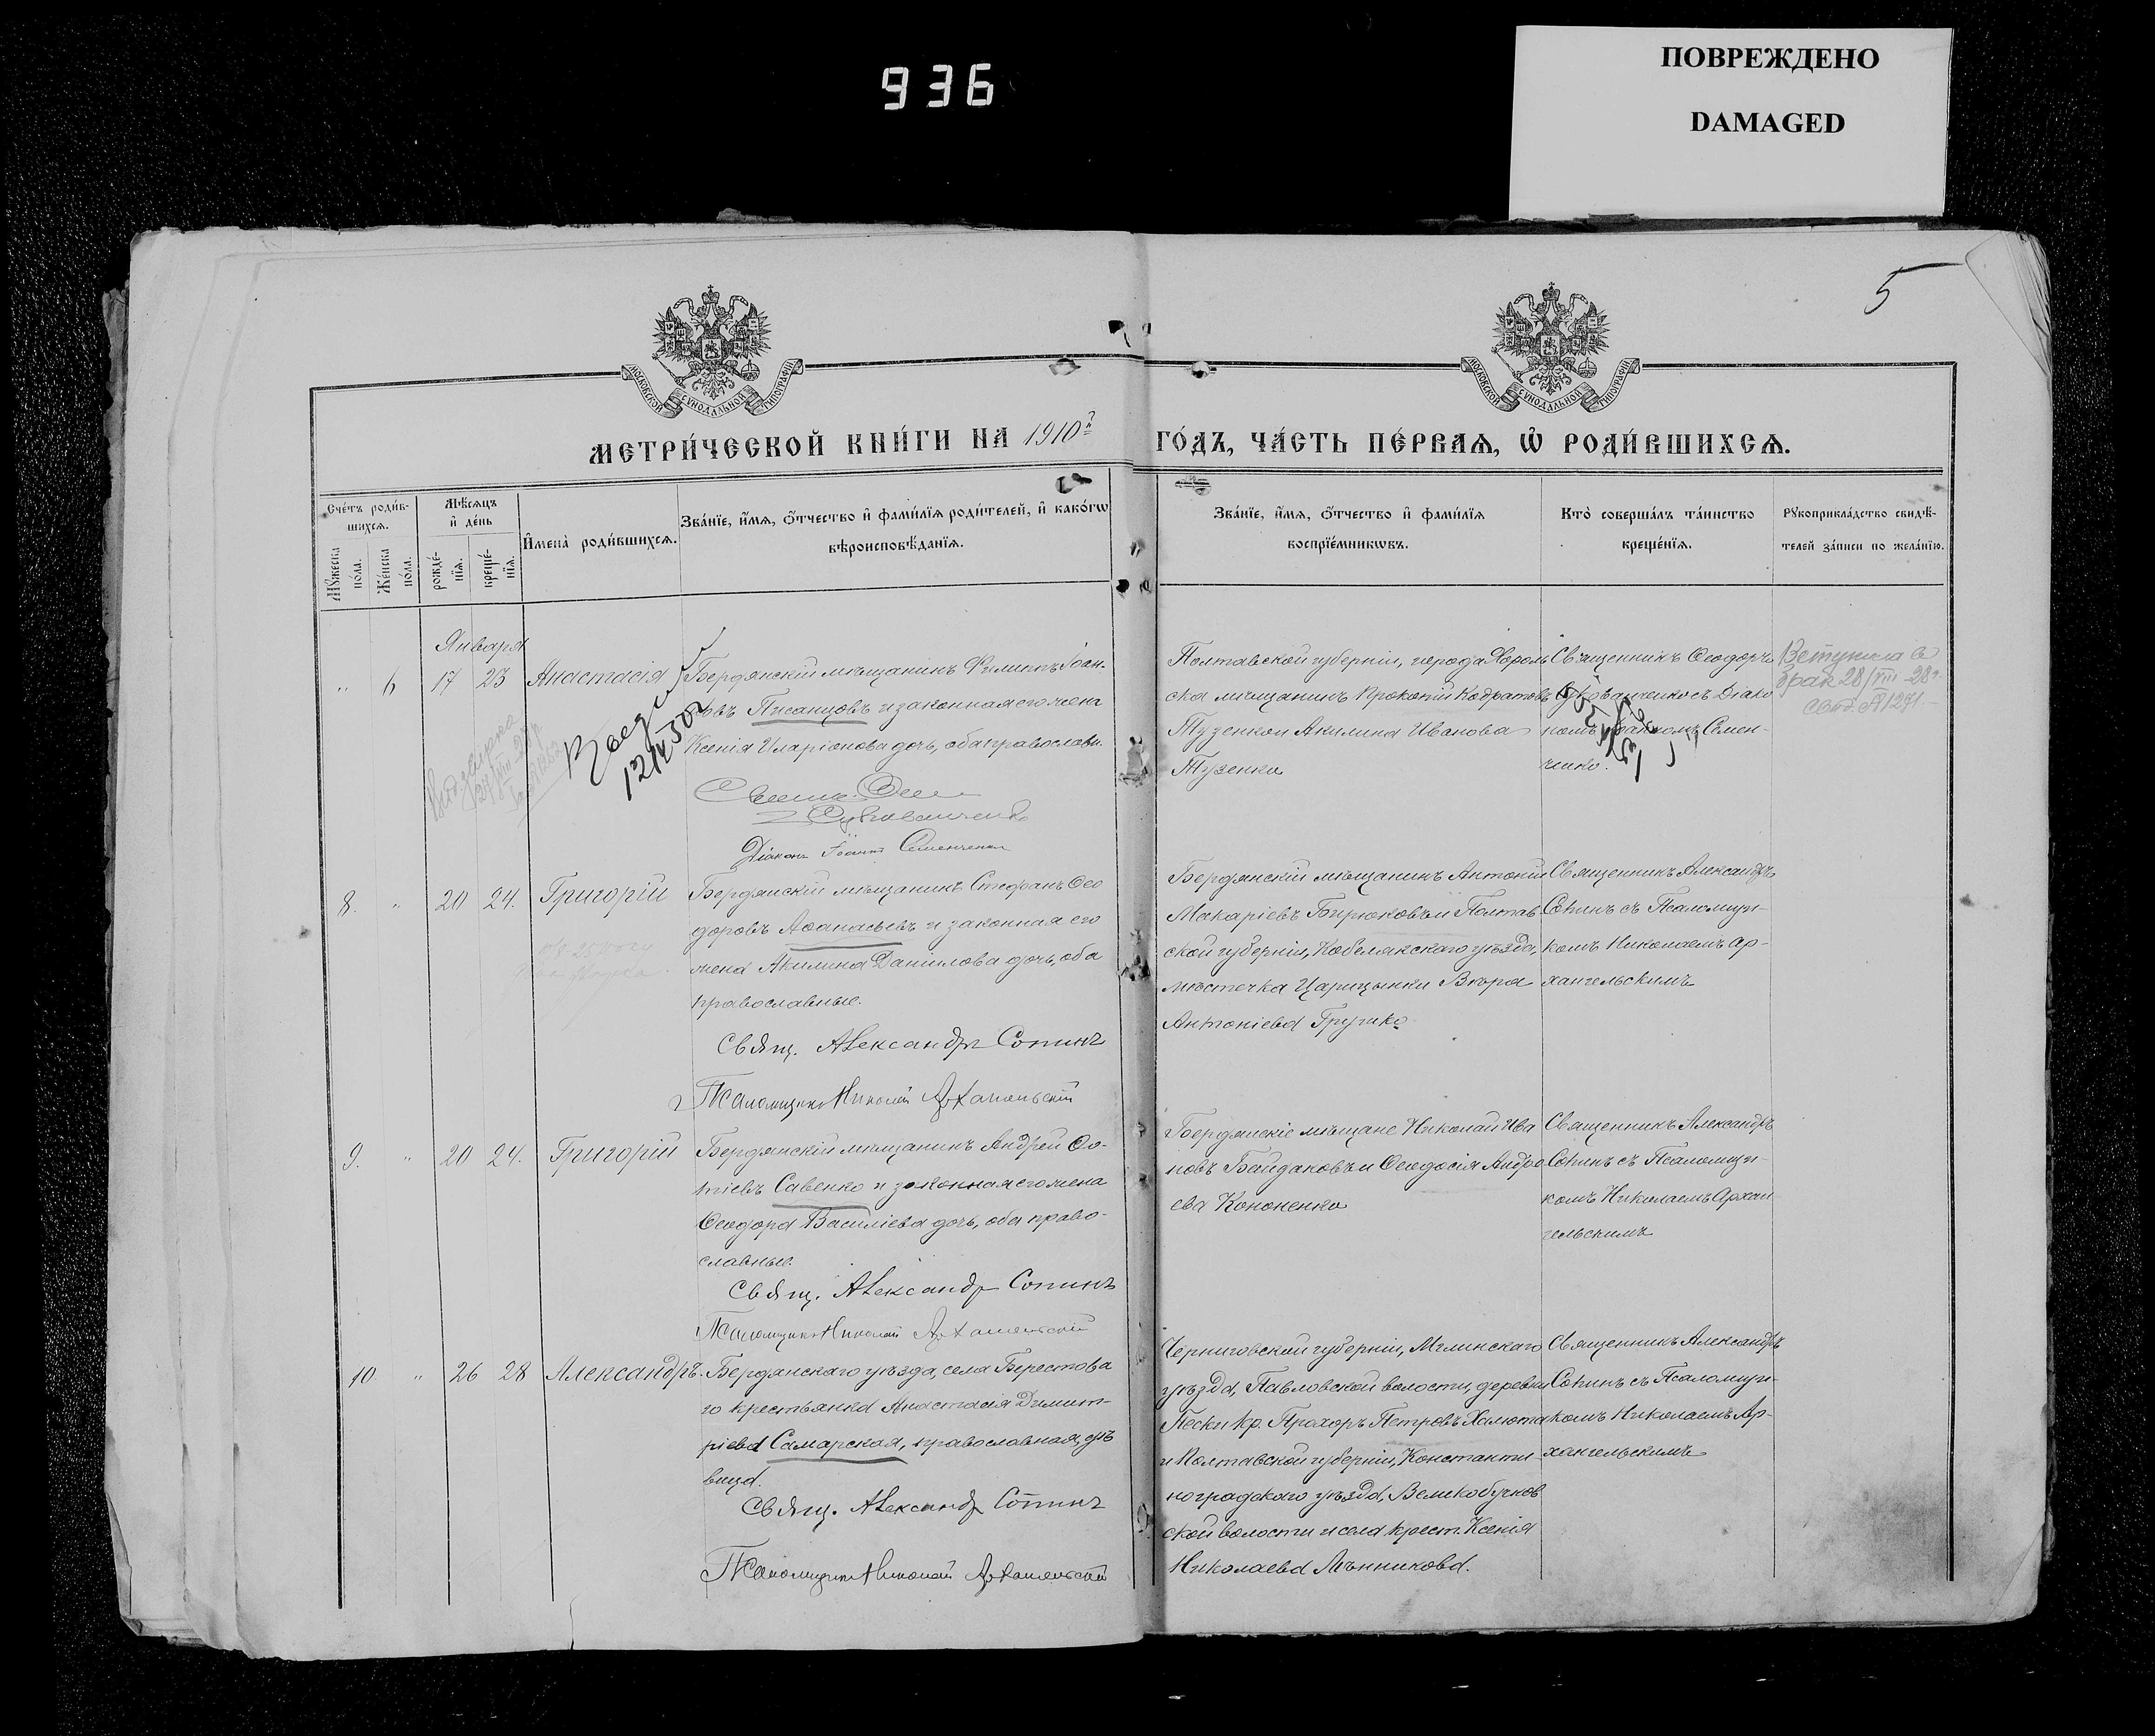 936
ПОВРЕЖДЕНО
DAMAGED
5
МОСКОВСКОЙ СѴНОДАЛЬНОЙ ТИПОГРАФІИ
МОСКОВСКОЙ СѴНОДАЛЬНОЙ ТИПОГРАФІИ
МЕТРИ́ЧЕСКОЙ КНИ́ГИ НА 1910й ГО́ДЪ, ЧА́СТЬ ПЕ́РВАЯ, Ѡ҆ РОДИ́ВШИХСЯ.
Сче́тъ роди́в-
шихся.
Мѣ́сяцъ
и҆ де́нь
Мꙋ́жеска
по́ла.
Же́нска
по́ла.
рожде́-
нїя.
креще́-
нїя.
И҆мена̀ роди́вшихся.
Зва́нїе, и҆́мя, ѻ҆́тчество и҆ фами́лїя роди́телей, и҆ како́гѡ
вѣроисповѣ́данїя.
Зва́нїе, и҆́мя, ѻ҆́тчество и҆ фами́лїя
воспрїе́мникѡвъ.
Кто̀ соверша́лъ та́инство
креще́нїя.
Рꙋкоприкла́дство свидѣ́-
телей за́писи по жела́нїю.
Января
" 6 17 23 Анастасія
Бердянскій мѣщанинъ Филиппъ Іоан-
овъ Писанцовъ и законная его жена
Ксенія Иларіонова дочь, оба правосл.
Діаконъ Іоаннъ Семенченко
Полтавской губерніи, города Хороль
ска мѣщанинъ Прокопій Кодратовъ
Тузенко и Акилина Иванова
Тузенко
Священникъ Ѳеодоръ
съ Діако
номъ Іоанномъ Семен-
ченко.
Вступила в
брак 28/VIII-28г.
1271
8. " 20 24. Григорій
Бердянскій мѣщанинъ Стефанъ Ѳео
доровъ Аѳанасьевъ и законная его
жена Акилина Даніилова дочь, оба
православные.
Свящ. Александръ Сопинъ
Псаломщикъ Николай Архангельскій
Бердянскій мѣщанинъ Антоній
Макаріевъ Бирюковъ и Полтав
ской губерніи, Кобелякскаго уѣзда,
мѣстечка Царицынки Вѣра
Антоніева Грушко
Священникъ Александръ
Сопинъ съ Псаломщи-
комъ Николаемъ Ар-
хангельскимъ
9. " 20 24. Григорій
Бердянскій мѣщанинъ Андрей Фо-
тіевъ Савенко и законная его жена
Ѳеодора Василіева дочь, оба право-
славные.
Свящ. Александръ Сопинъ
Псаломщикъ Николай Архангельскій
Бердянскіе мѣщане Николай Ива
новъ Байдаковъ и Ѳеодосія Андре
ева Кононенко
Священникъ Александръ
Сопинъ съ Псаломщи-
комъ Николаемъ Архан
гельскимъ
10 " 26 28 Александръ.
Бердянскаго уѣзда, села Берестова
го крестьянка Анастасія Димит-
ріева Самарская, православная, дѣ
вица.
Свящ. Александръ Сопинъ
Псаломщикъ Николай Архангельскій
Черниговской губерніи, Мглинскаго
уѣзда, Павловской волости, деревни
Пески кр. Прохоръ Петровъ Халюта
и Полтавской губерніи, Константи
ноградскаго уѣзда, Великобучков
ской волости и села крест. Ксенія
Николаева
Священникъ Александръ
Сопинъ съ Псаломщи-
комъ Николаемъ Ар-
хангельскимъ